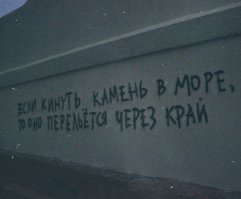 ЕСЛИ КИНУТЬ КАМЕНЬ В МОРЕ,
ТО ОНО ПЕРЕЛЬЁТСЯ ЧЕРЕЗ КРАЙ